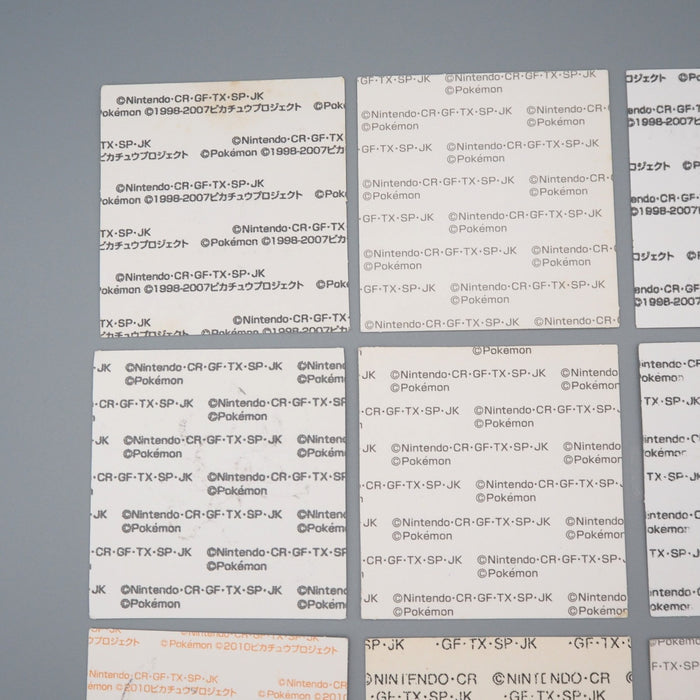 ©Nintendo·CR·GF·TX·SP·JK ©Pok
Pokémon ©1998-2007ピカチュウプロジェクト
TX·SP·JK ©Nintendo·CR·GF·TX
ピカチュウプロジェクト ©Pokémon ©1998-2007ピカ
©Nintendo·CR·GF·TX·SP·JK ©Pok
Pokémon ©1998-2007ピカチュウプロジェクト
TX·SP·JK ©Nintendo·CR·GF·TX
ピカチュウプロジェクト ©Pokémon ©1998-2007ピカ
©Nintendo·CR·GF·TX·SP·JK ©Pok
Pokémon ©1998-2007ピカチュウプロジェクト
TX·SP·JK ©Nintendo·CR·GF·TX
ピカチュウプロジェクト ©Pokémon ©1998-2007ピカ
GF·TX·SP·JK ©Nintendo·CR·GF·TX·SP·JK
©Pokémon
©Nintendo·CR·GF·TX·SP·JK ©Nintendo·C
©Pokémon ©Pokémon
·GF·TX·SP·JK ©Nintendo·CR·GF·TX·SP·JK
©Pokémon
©Nintendo·CR·GF·TX·SP·JK ©Nintendo·C
©Pokémon ©Pokémon
GF·TX·SP·JK ©Nintendo·CR·GF·TX·SP·JK
©Pokémon
©Nintendo·CR·GF·TX·SP·JK ©Nintendo·C
©Pokémon ©Pokémon
GF·TX·SP·JK ©Nintendo·CR·GF·TX·SP·JK
©Pokémon
©Nintendo·CR·GF·TX·SP·JK ©Nintendo·
ロジェクト
endo·CR·GF
©1998-2007
ロジェクト
endo·CR·GF
©1998-2007ピ
ロジェクト
endo·CR·GF
©1998-2007
·JK ©Nintendo·CR·GF·TX·SP·JK ©Ninten
©Pokémon ©Pokém
·CR·GF·TX·SP·JK ©Nintendo·CR·GF·TX·SP
©Pokémon
·JK ©Nintendo·CR·GF·TX·SP·JK ©Ninten
©Pokémon ©Pokém
·CR·GF·TX·SP·JK ©Nintendo·CR·GF·TX·SP
©Pokémon
·JK ©Nintendo·CR·GF·TX·SP·JK ©Ninten
©Pokémon ©Pokém
·CR·GF·TX·SP·JK ©Nintendo·CR·GF·TX·SP
©Pokémon
JK ©Nintendo·CR·GF·TX·SP·JK ©Ninten
©Pokémon ©Pokém
©Pokémon
·JK ©Nintendo·CR·GF·TX·SP·JK ©Nintend
©Pokémon ©Pokémo
·CR·GF·TX·SP·JK ©Nintendo·CR·GF·TX·SP·
©Pokémon
·JK ©Nintendo·CR·GF·TX·SP·JK ©Nintend
©Pokémon ©Pokémo
·CR·GF·TX·SP·JK ©Nintendo·CR·GF·TX·SP·
©Pokémon
JK ©Nintendo·CR·GF·TX·SP·JK ©Nintend
©Pokémon ©Pokémo
·CR·GF·TX·SP·JK ©Nintendo·CR·GF·TX·SP·J
©Pokémon
JK ©Nintendo·CR·GF·TX·SP·JK ©Nintend
©Pokémon ©Pokémo
ntendo·C
okémon
TX·SP·JK
ntendo·C
okémon
TX·SP·JK
intendo·C
okémon
TX·SP·JK
ntendo·C
okémon
TX·SP·JK
©Pokémon ©2010ピカチュウプロジェクト
©Nintendo·CR·GF·TX·SP·JK
©Pokémon ©2010ピカチュウプロジェクト ©Pokémon
SP·JK ·GF·TX·SP·JK ·GF·TX·S
©NINTENDO·CR ©NINTENDO·CR
·GF·TX·SP·JK ·GF·TX·SP·JK